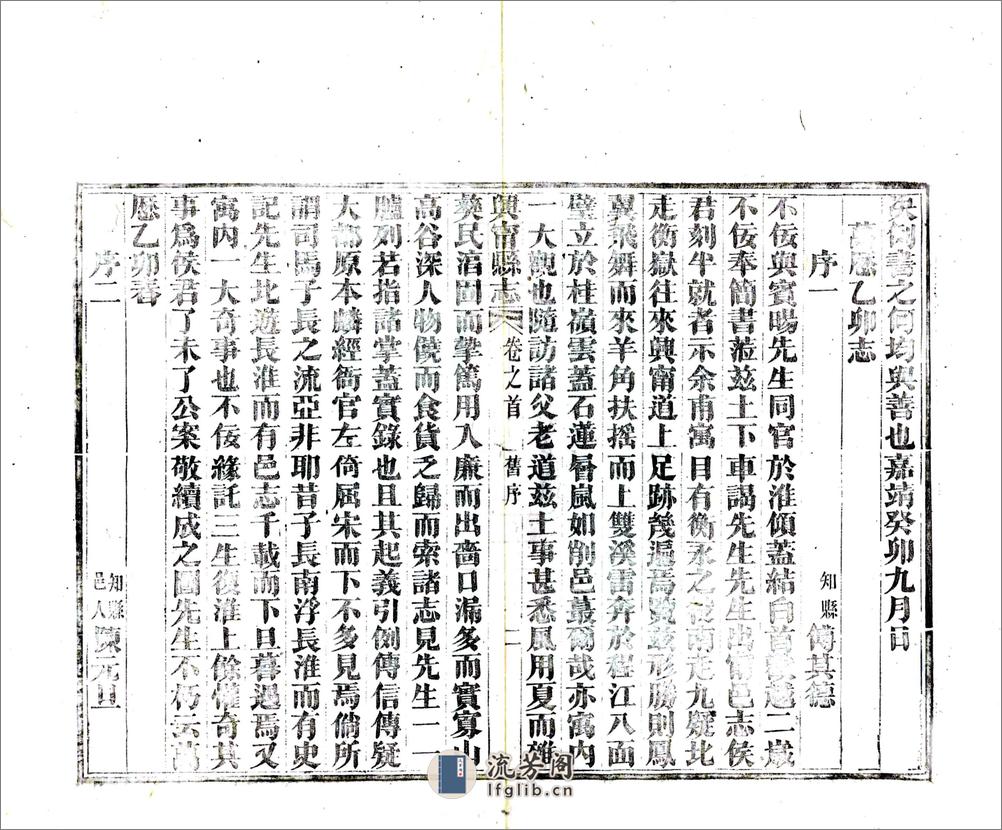 例書之何均與善也嘉靖癸卯九月日
萬歷乙卯志
序一 知縣傅其德
不佞與賓暘先生同官於淮傾蓋結白首 越二歲
不佞奉簡書蒞茲土下車謁先生先生出甯邑志侯
君刻半就者示余甫寓目有衡永之 南走九疑北
走衡嶽往來興甯道上足跡幾遍焉覽茲形勝則鳳
翼飛舞而來羊角扶搖而上雙溪雷奔於程江八面
壁立於桂嶺雲蓋石蓮層嵐如削邑蕞爾哉亦寓內
一大觀也隨訪諸父老道茲土事甚悉風用夏而雜
興甯縣志 卷之首 舊序 二
獠民 固而摯篤用入廉而出嗇口漏多而實寡山
高谷深人物僥而食貨乏歸而索諸志見先生一一
臚列若指諸掌蓋實錄也且其起義引例傳信傳疑
大都原本麟經衙官左倚屈宋而下不多見焉倘所
謂司馬子長之流亞非耶昔子長南浮長淮而有史
記先生北遊長淮而有邑志千載而下旦暮遇焉又
寓內一大奇事也不佞緣託三生復淮上餘懽奇其
事爲侯君了未了公案敬續成之圖先生不朽云萬
歷乙卯春
序二 知縣邑人陳元旦
流芳阁
lfglib.cn